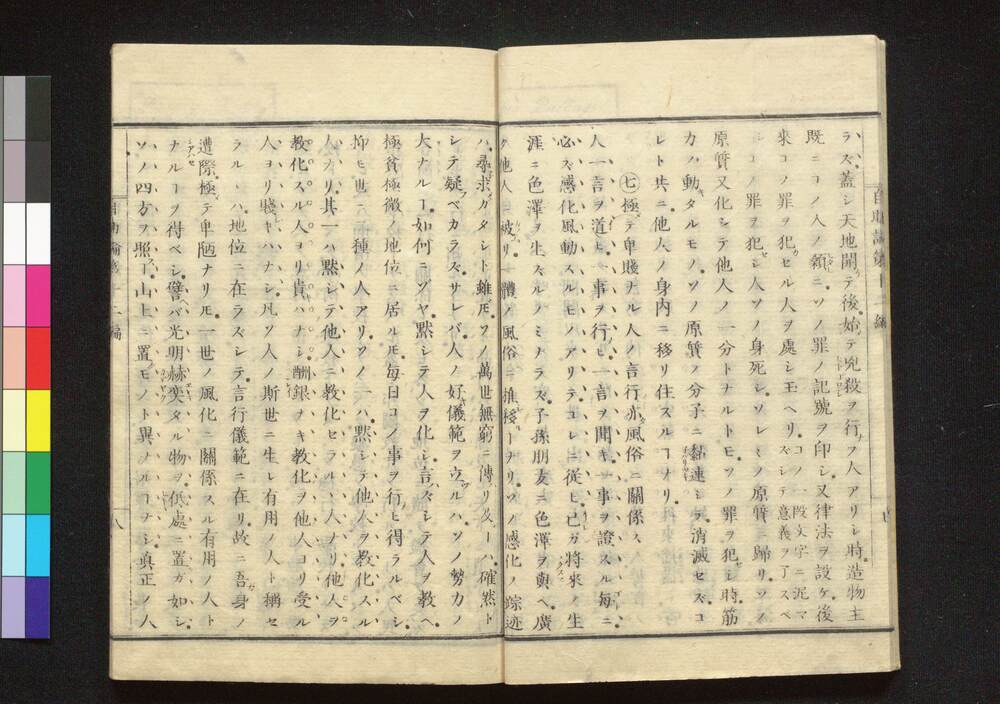 ラズ蓋シ天地開テ後始テ兇殺ヲ行フ人アリシ時造物主
既ニコノ人ノ額ニソノ罪ノ記號ヲ印シ又律法ヲ設ケ後
來コノ罪ヲ犯セル人ヲ處シ玉ヘリコノ一段文字ニ泥マズシテ意義ヲ了スベシ
コノ罪ヲ犯シ人ソノ身死シソレミノ原質ニ歸リソノ
原質又化シテ他人ノ一分トナルトモソノ罪ヲ犯シ時筋
力ハ動キタルモノソノ原質ノ分子ニ黏連シテ消滅セズコ
レト共ニ他人ノ身內ニ移リ住スルヿナリ
㊆極テ卑賤ナル人ノ言行亦風俗ニ關係ス
人一言ヲ道ヒ一事ヲ行ヒ一言ヲ聞キ一事ヲ證スル每ニ
必ズ感化風動スルモノアリテコレニ從ヒ己ガ將來ノ生
涯ニ色澤ヲ生ズルノミナラズ子孫朋友ニ色澤ヲ與ヘ廣
ク他人ニ被リ一體ノ風俗ニ推移ーナリソノ感化ノ踪迹
ハ尋求ガタシト雖𪜈ソノ萬世無窮ニ傳リ及ブーハ確然ト
シテ疑ベカラズサレバ人ノ好儀範ヲ立ルハソノ勢力ノ
大ナルヿ如何ニゾヤ默シテ人ヲ化シ言ハズシテ人ヲ教ヘ
極貧極微ノ地位ニ居ル𪜈每日コノ事ヲ行ヒ得ラルベシ
抑モ世ニ二種ノ人アリソノ一ハ默シテ他人ヲ教化スル
人ナリ其一ハ默シテ他人ニ教化セラルヽ人ナリ他人ヲ
教化スル人ヨリ貴ハナシ酬銀ナキ教化ヲ他人ヨリ受ル
人ヨリ賤キハナシ凡ソ人ノ斯世ニ生レ有用ノ人ト稱セ
ラルヽハ地位ニ在ラズシテ言行儀範ニ在リ故ニ吾身ノ
遭際極テ卑陋ナリ𪜈一世ノ風化ニ關係スル有用ノ人ト
ナルヿヲ得ベシ譬バ光明赫奕タル物ヲ低處ニ置ガ如シ
ソノ四方ヲ照スヿ山上ニ置モノト異ナルヿナシ真正ノ人
八